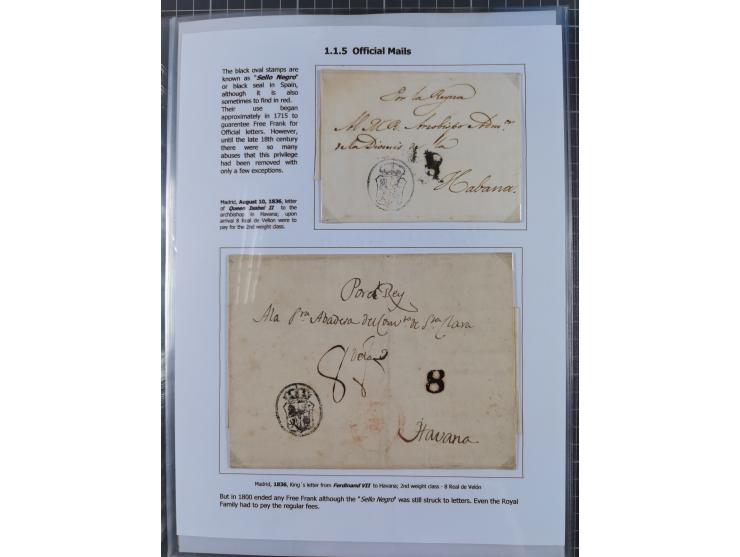 1.1.5 Official Mails
The black oval stamps are
known as "Sello Negro"
or black seal in Spain,
although it is also
sometimes to find in red.
Their use began
approximately in 1715 to
guarentee Free Frank for
Official letters. However,
until the late 18th century
there were so many
abuses that this privilege
had been removed with
only a few exceptions.
Madrid, August 10, 1836, letter
of Queen Isabel II to the
archbishop in Havana; upon
arrival 8 Real de Vellon were to
pay for the 2nd weight class.
Por la Reyna
Al M.R. Arzobispo Admor
de la Diocesis de la
8
Habana.
Por el Rey
A la Sra Abadesa del Convto de Sta Clara
8
8
Havana
Madrid, 1836, King´s letter from Ferdinand VII to Havana; 2nd weight class - 8 Real de Velón
But in 1800 ended any Free Frank although the "Sello Negro" was still struck to letters. Even the Royal
Family had to pay the regular fees.